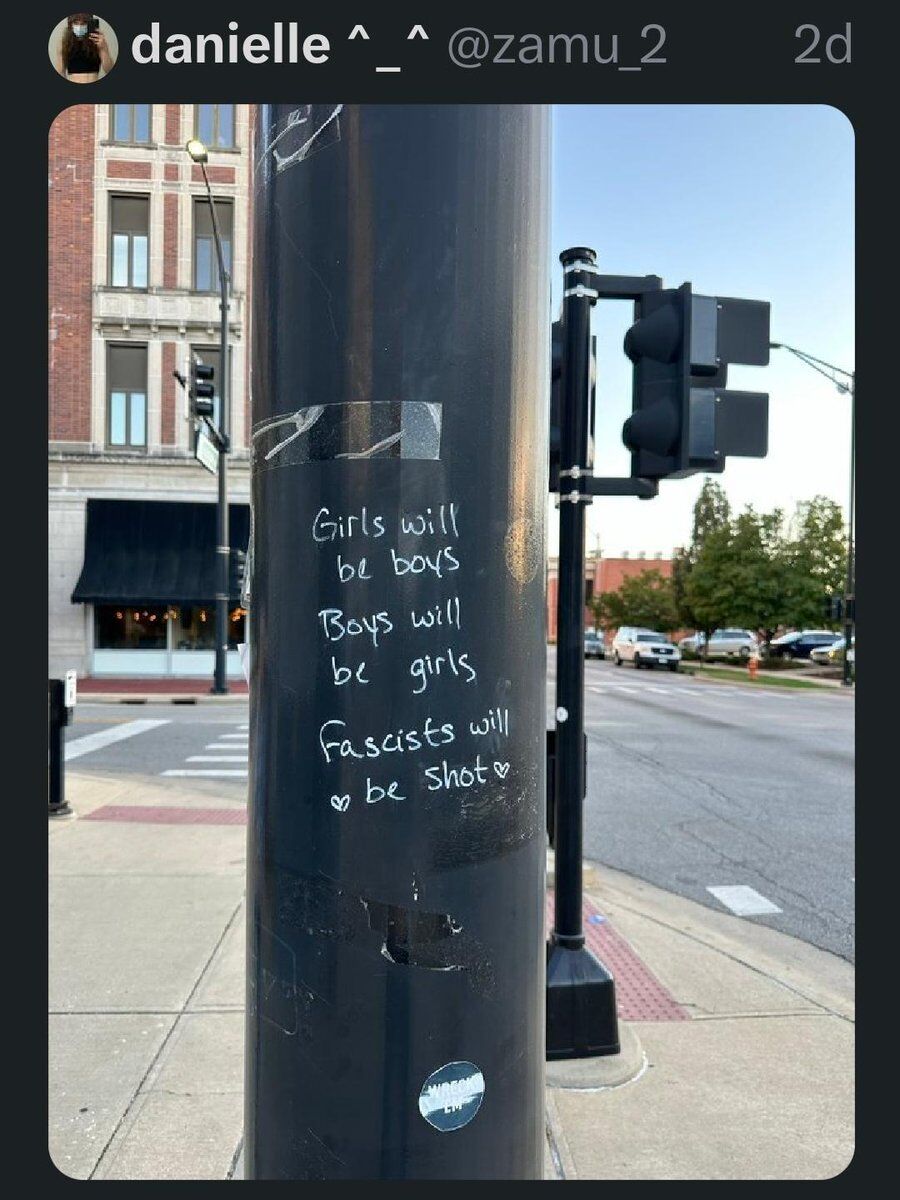 danielle ^_^ @zamu_2 2d
Girls will
be boys
Boys will
be girls
Fascists will
♡ be shot ♡
WRECK
EM